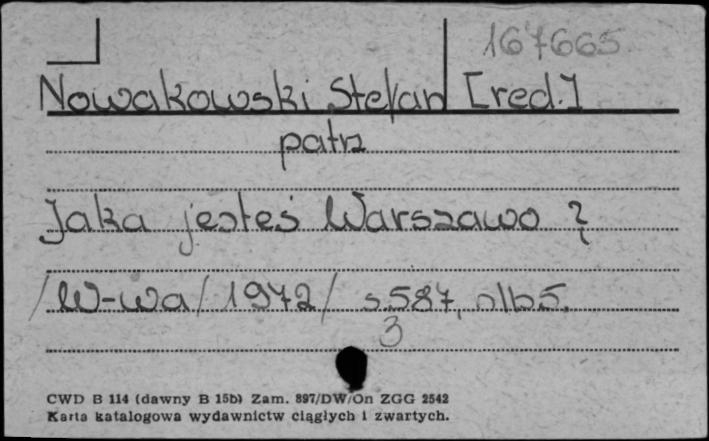 167665
Nowakowski Stefan [red.]
patrz
Jaka jesteś Warszawo ?
/W-wa/ 1972/ s.587, nlb5.
3
CWD B 114 (dawny B 15b) Zam. 897/DW/On ZGG 2542
Karta katalogowa wydawnictw ciągłych i zwartych.